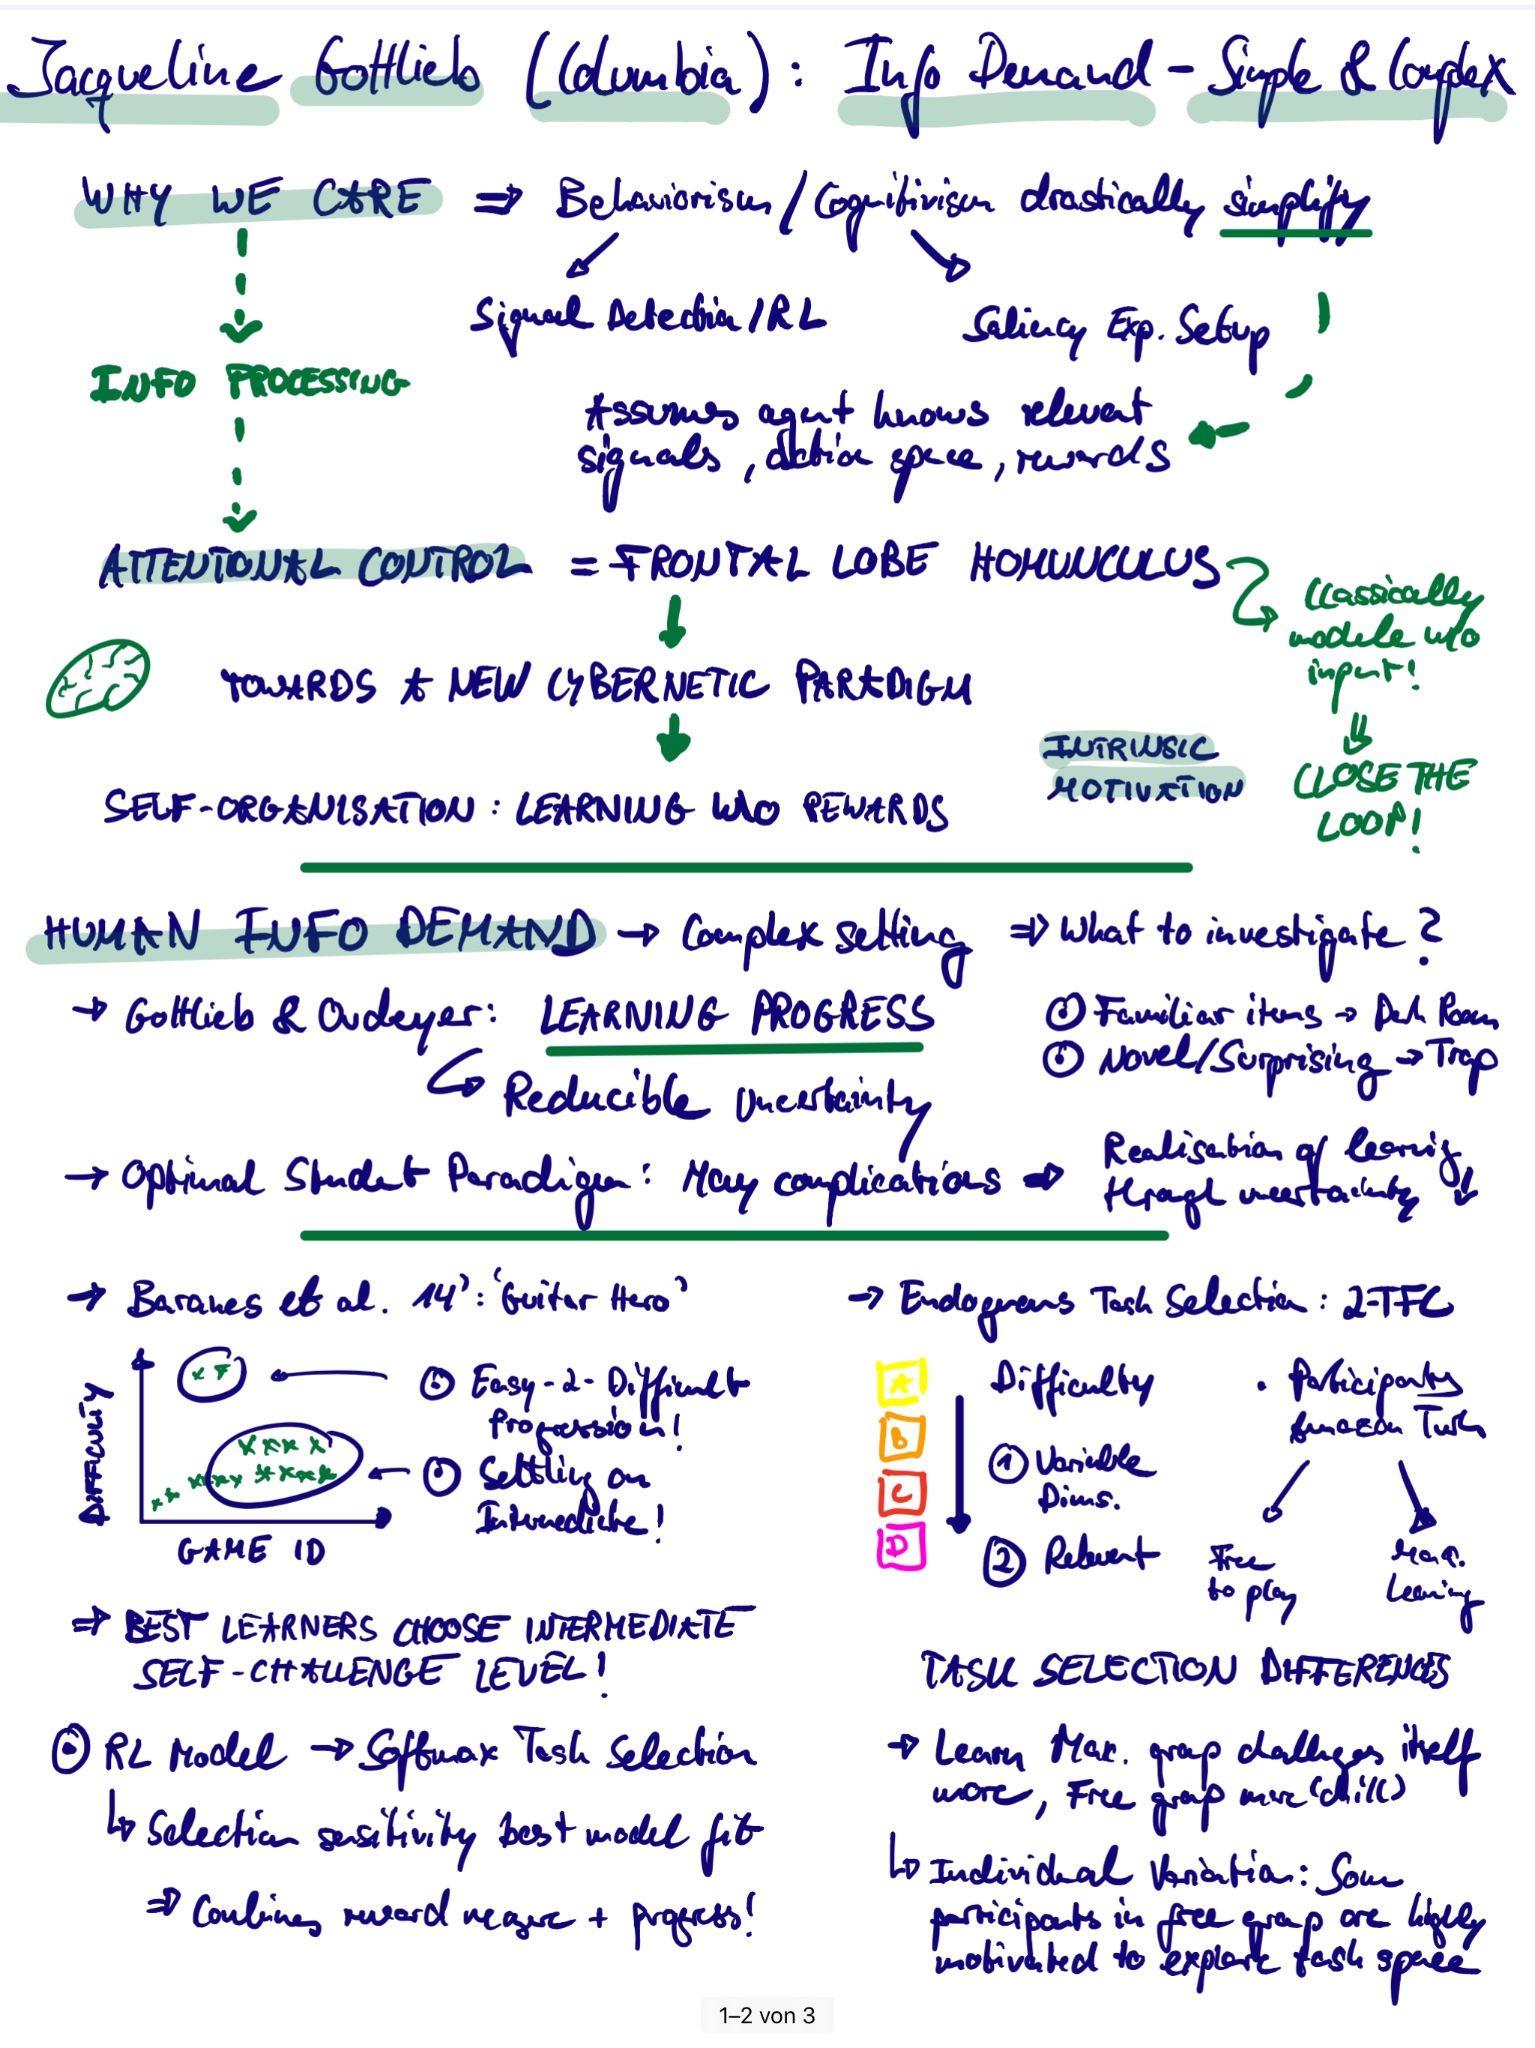 Jacqueline Gottlieb (Columbia): Info Demand - Simple & Complex
WHY WE CARE => Behaviorism/Cognitivism drastically simplify
Signal Detection/RL
Saliency Exp. Setup
INFO PROCESSING
Assumes agent knows relevant
signals, action space, rewards
ATTENTIONAL CONTROL = FRONTAL LOBE HOMUNCULUS
Classically
models w/o
input!
TOWARDS A NEW CYBERNETIC PARADIGM
INTRINSIC
MOTIVATION
CLOSE THE
LOOP!
SELF-ORGANISATION: LEARNING W/O REWARDS
HUMAN INFO DEMAND → Complex setting => What to investigate?
→ Gottlieb & Oudeyer: LEARNING PROGRESS
Reducible Uncertainty
Familiar items → Dark Room
Novel/Surprising → Trap
→ Optimal Student Paradigm: Many complications =>
Realisation of learning
through uncertainty ↓
→ Baranes et al. 14': 'Guitar Hero'
DIFFICULTY
GAME ID
Easy-2-Difficult
Progression!
Settling on
Intermediate!
=> BEST LEARNERS CHOOSE INTERMEDIATE
SELF-CHALLENGE LEVEL!
RL Model → Softmax Task Selection
Selection sensitivity best model fit
=> Combines reward + progress!
→ Endogenous Task Selection: 2-TFC
A
B
C
D
Difficulty
1 Variable
Dims.
2 Relevant
· Participants
Free
to play
Max.
Learning
TASK SELECTION DIFFERENCES
→ Learn Max. group challenges itself
more, Free group more 'chill'
Individual Variation: Some
participants in free group are highly
motivated to explore task space
1–2 von 3